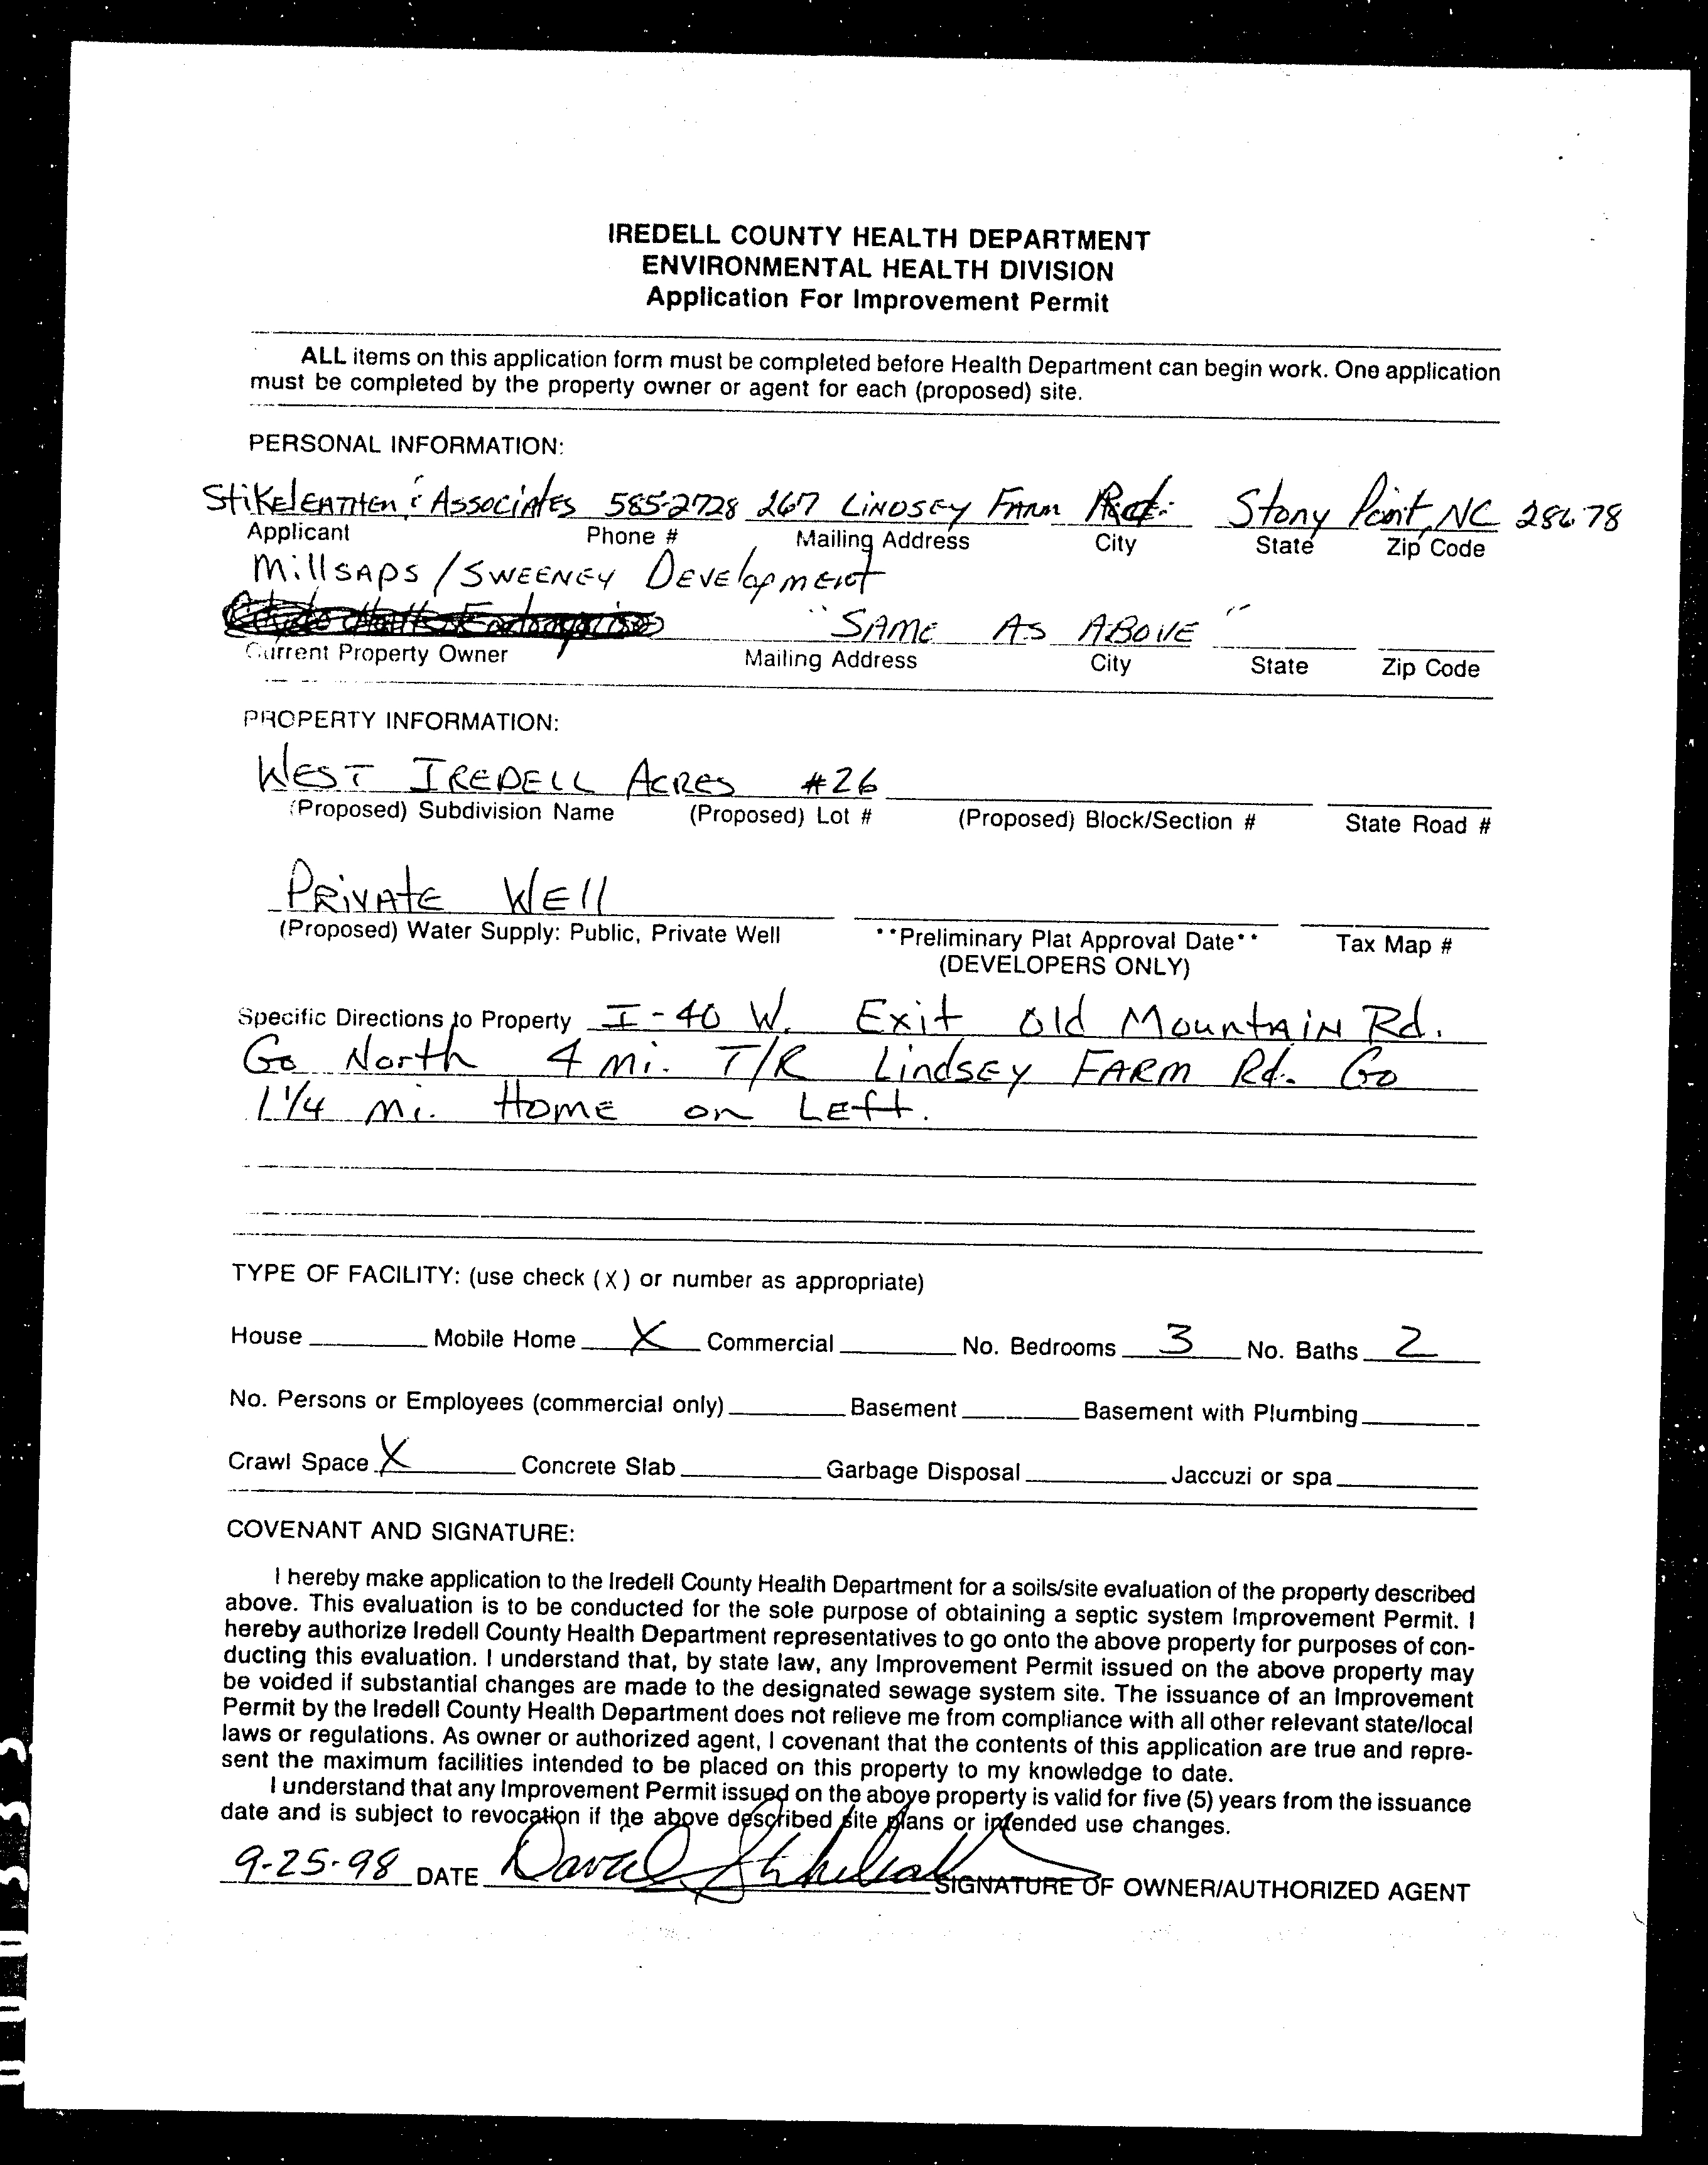 IREDELL COUNTY HEALTH DEPARTMENT
ENVIRONMENTAL HEALTH DIVISION
Application For Improvement Permit
ALL items on this application form must be completed before Health Department can begin work. One application
must be completed by the property owner or agent for each (proposed) site.
PERSONAL INFORMATION:
& Associates 585-2728 267 Lindsey Farm Rd. Stony Point, NC 28678
Applicant Phone # Mailing Address City State Zip Code
Millsaps / Sweeney Development
"SAME AS ABOVE"
Current Property Owner Mailing Address City State Zip Code
PROPERTY INFORMATION:
WEST IREDELL ACRES #26
(Proposed) Subdivision Name (Proposed) Lot # (Proposed) Block/Section # State Road #
Private Well
(Proposed) Water Supply: Public, Private Well **Preliminary Plat Approval Date** Tax Map #
(DEVELOPERS ONLY)
Specific Directions to Property I-40 W. Exit Old Mountain Rd.
Go North 4 mi. T/R Lindsey FARM Rd. Go
1 1/4 mi. Home on Left.
TYPE OF FACILITY: (use check (X) or number as appropriate)
House Mobile Home X Commercial No. Bedrooms 3 No. Baths 2
No. Persons or Employees (commercial only) Basement Basement with Plumbing
Crawl Space X Concrete Slab Garbage Disposal Jaccuzi or spa
COVENANT AND SIGNATURE:
I hereby make application to the Iredell County Health Department for a soils/site evaluation of the property described
above. This evaluation is to be conducted for the sole purpose of obtaining a septic system Improvement Permit. I
hereby authorize Iredell County Health Department representatives to go onto the above property for purposes of con-
ducting this evaluation. I understand that, by state law, any Improvement Permit issued on the above property may
be voided if substantial changes are made to the designated sewage system site. The issuance of an Improvement
Permit by the Iredell County Health Department does not relieve me from compliance with all other relevant state/local
laws or regulations. As owner or authorized agent, I covenant that the contents of this application are true and repre-
sent the maximum facilities intended to be placed on this property to my knowledge to date.
I understand that any Improvement Permit issued on the above property is valid for five (5) years from the issuance
date and is subject to revocation if the above described site plans or intended use changes.
9-25-98 DATE SIGNATURE OF OWNER/AUTHORIZED AGENT